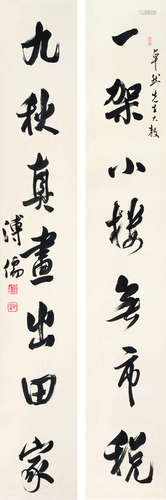 一架小樓無市税
卓然先生大教
九秋真畫出田家
溥儒